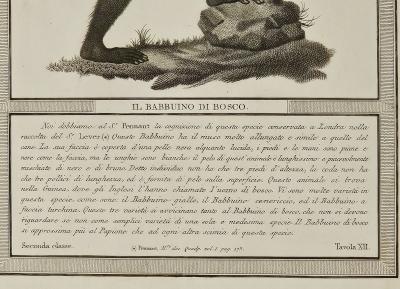 IL BABBUINO DI BOSCO.
Noi dobbiamo al S.r Pennant la cognizione di questa specie conservata a Londra nella
raccolta del S.r Lever (a) Questo Babbuino ha il muso molto allungato e simile a quello del
cane. La sua faccia è coperta d'una pelle nera alquanto lucida, i piedi e le mani sono pure e
nere come la faccia, ma le unghie sono bianche: il pelo di quest'animale è lunghissimo e piacevolmente
mischiato di nero e di bruno. Detto individuo non ha che tre piedi d'altezza, la coda non ha
che tre pollici di lunghezza, ed è fornita di pelo sulla superficie. Questo animale si trova
nella Guinea, dove gl'Inglesi l'hanno chiamato l'uomo di bosco. Vi sono molte varietà in
questa specie come sono: il Babbuino giallo, il Babbuino cenericcio, ed il Babbuino a
faccia turchina. Queste tre varietà si avvicinano tanto al Babbuino di bosco, che non si devono
riguardare se non come semplici varietà di una sola e medesima specie. Il Babbuino di bosco
si approssima più al Papione che ad ogni altra scimia di questa specie.
Seconda classe. (a) Pennant, vol. 1. pag. 178. Tavola XII.